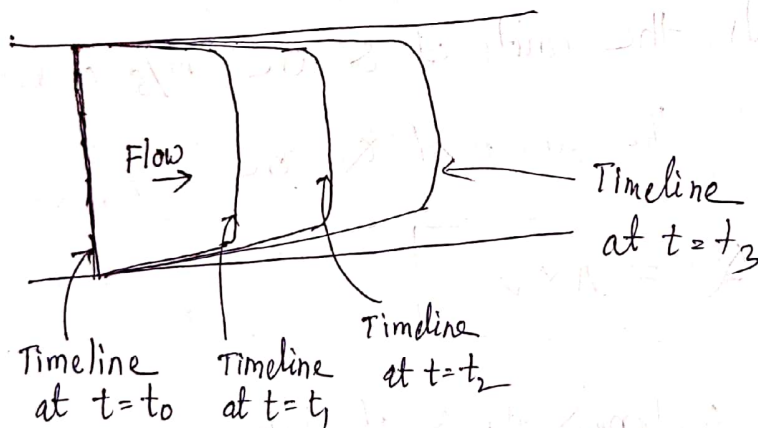 Flow
Timeline
at t = t₃
Timeline
at t = t₀
Timeline
at t = t₁
Timeline
at t = t₂